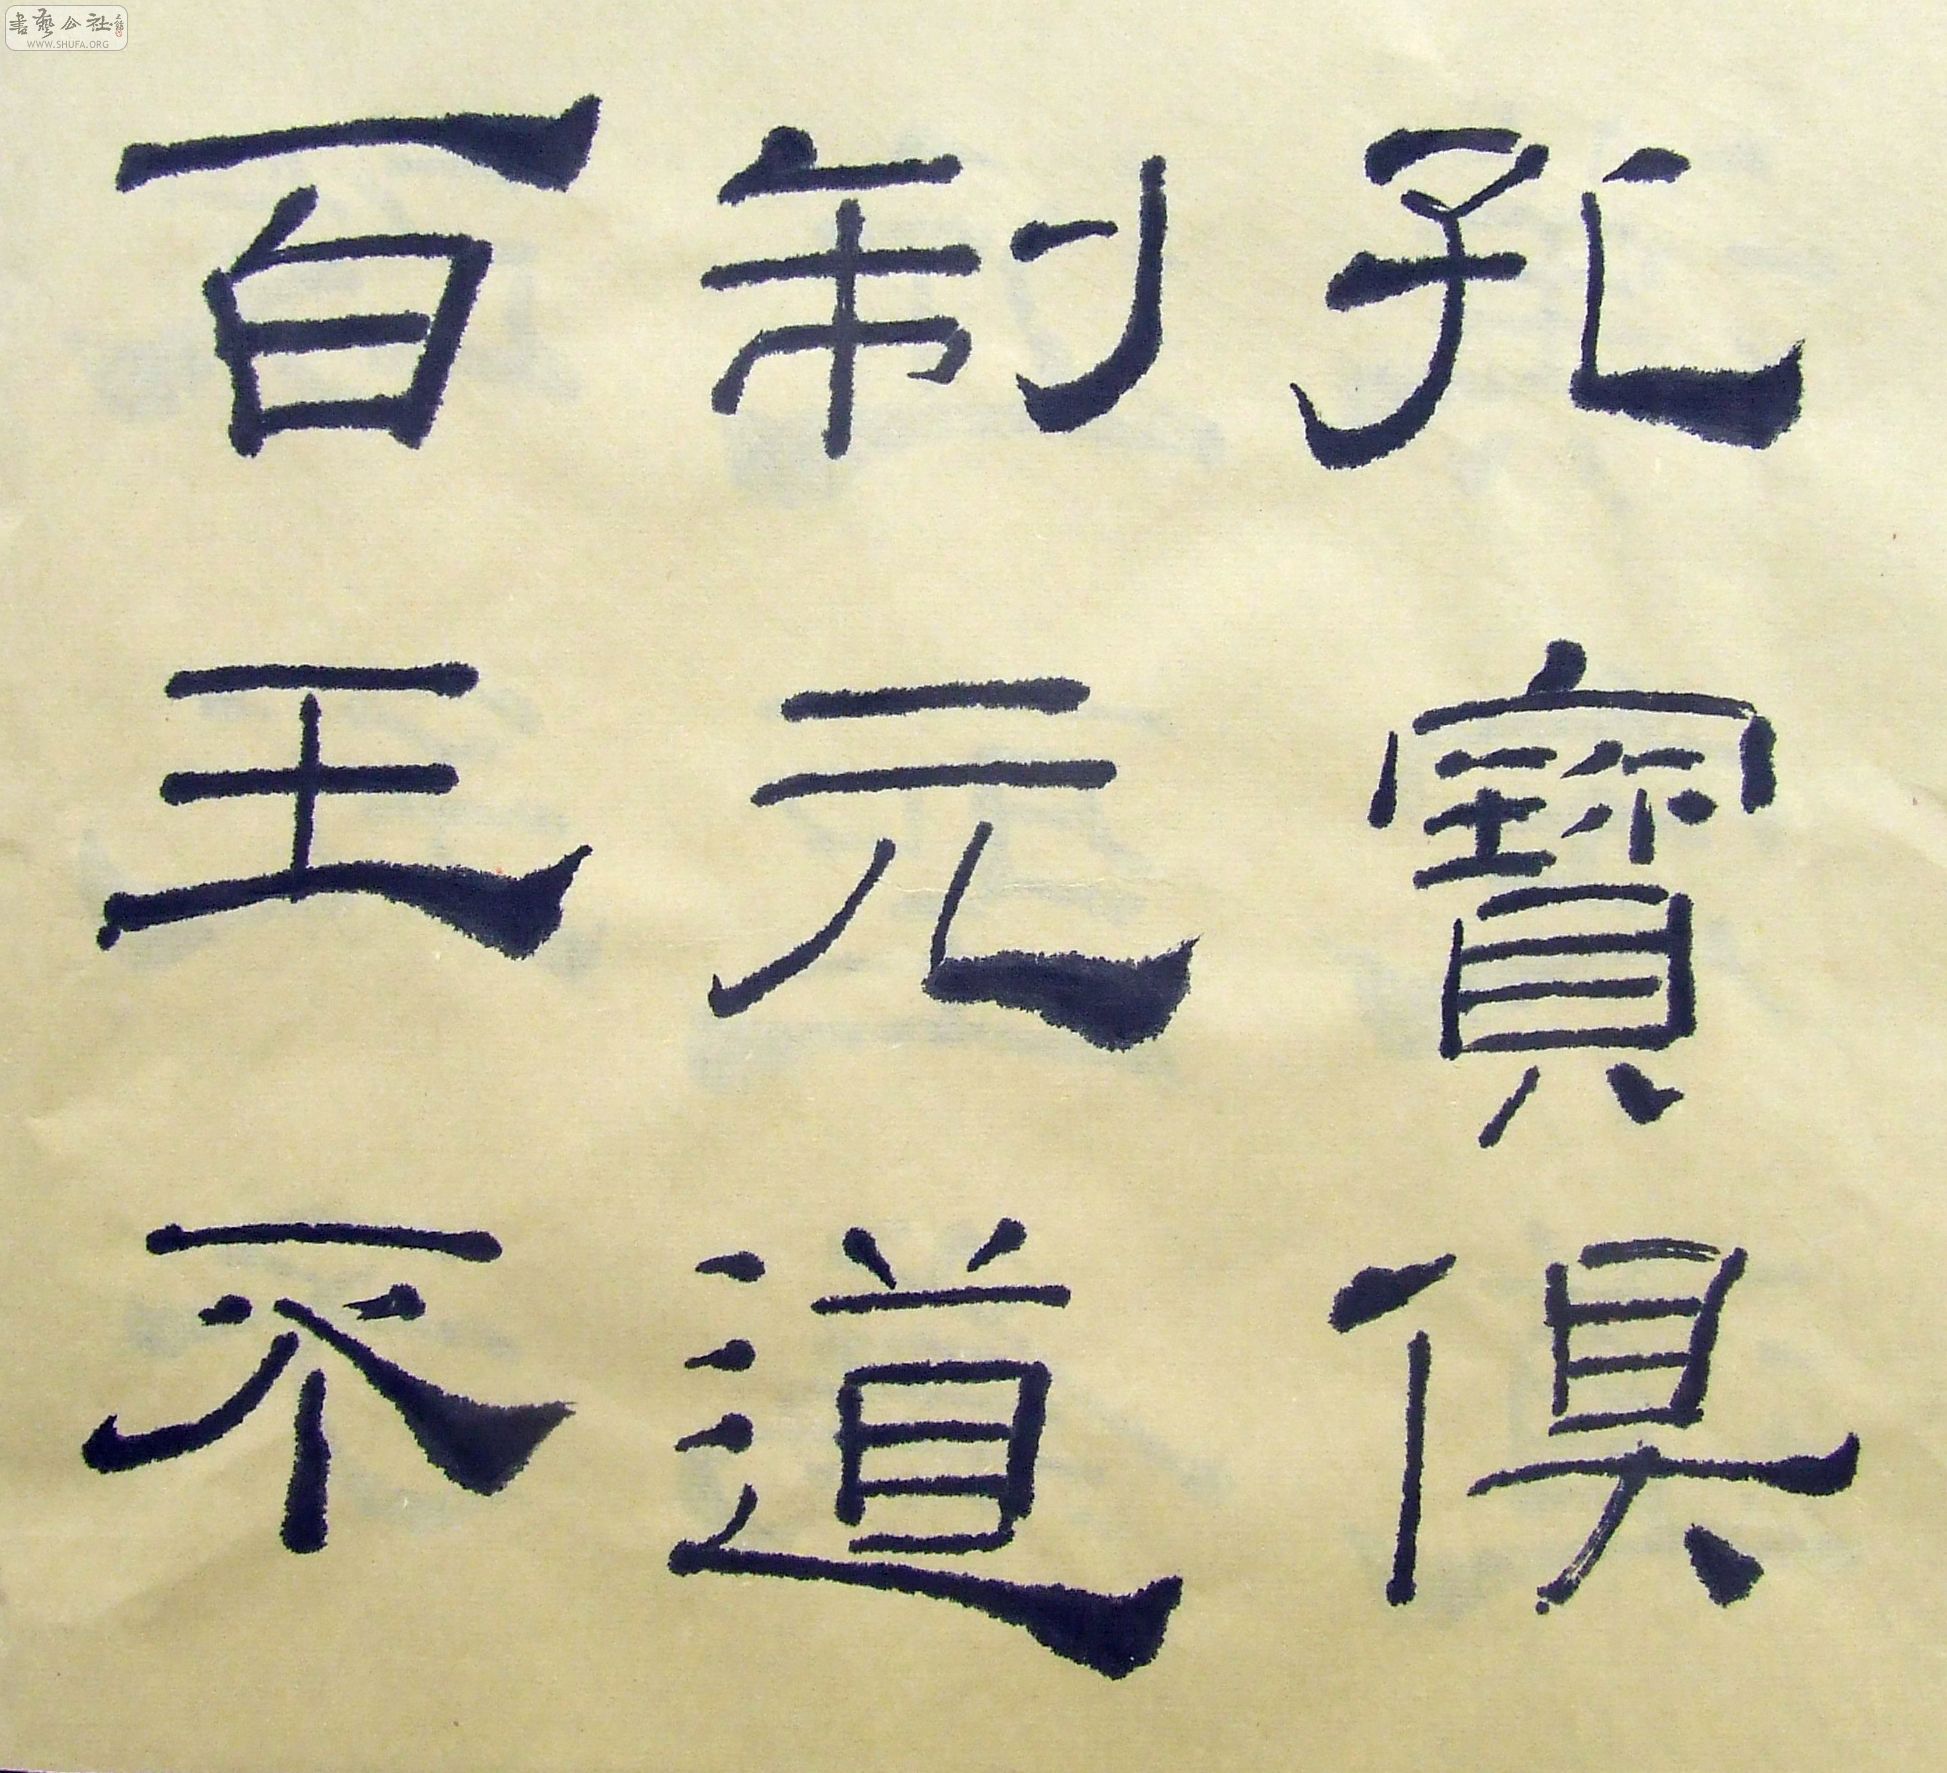 孔寶俱
制元道
百王不
書藝公社
WWW.SHUFA.ORG